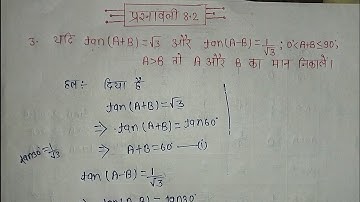 प्रश्नावली 8.2
3. यदि tan(A+B)=√3 और tan(A-B)=1/√3 ; 0°<A+B≤90°;
A>B तो A और B का मान निकालें।
हल:- दिया है
tan(A+B)=√3
⇒ tan(A+B)=tan60°
⇒ A+B=60° —(i)
tan30°=1/√3
tan(A-B)=1/√3
⇒ tan(A-B)=tan30°